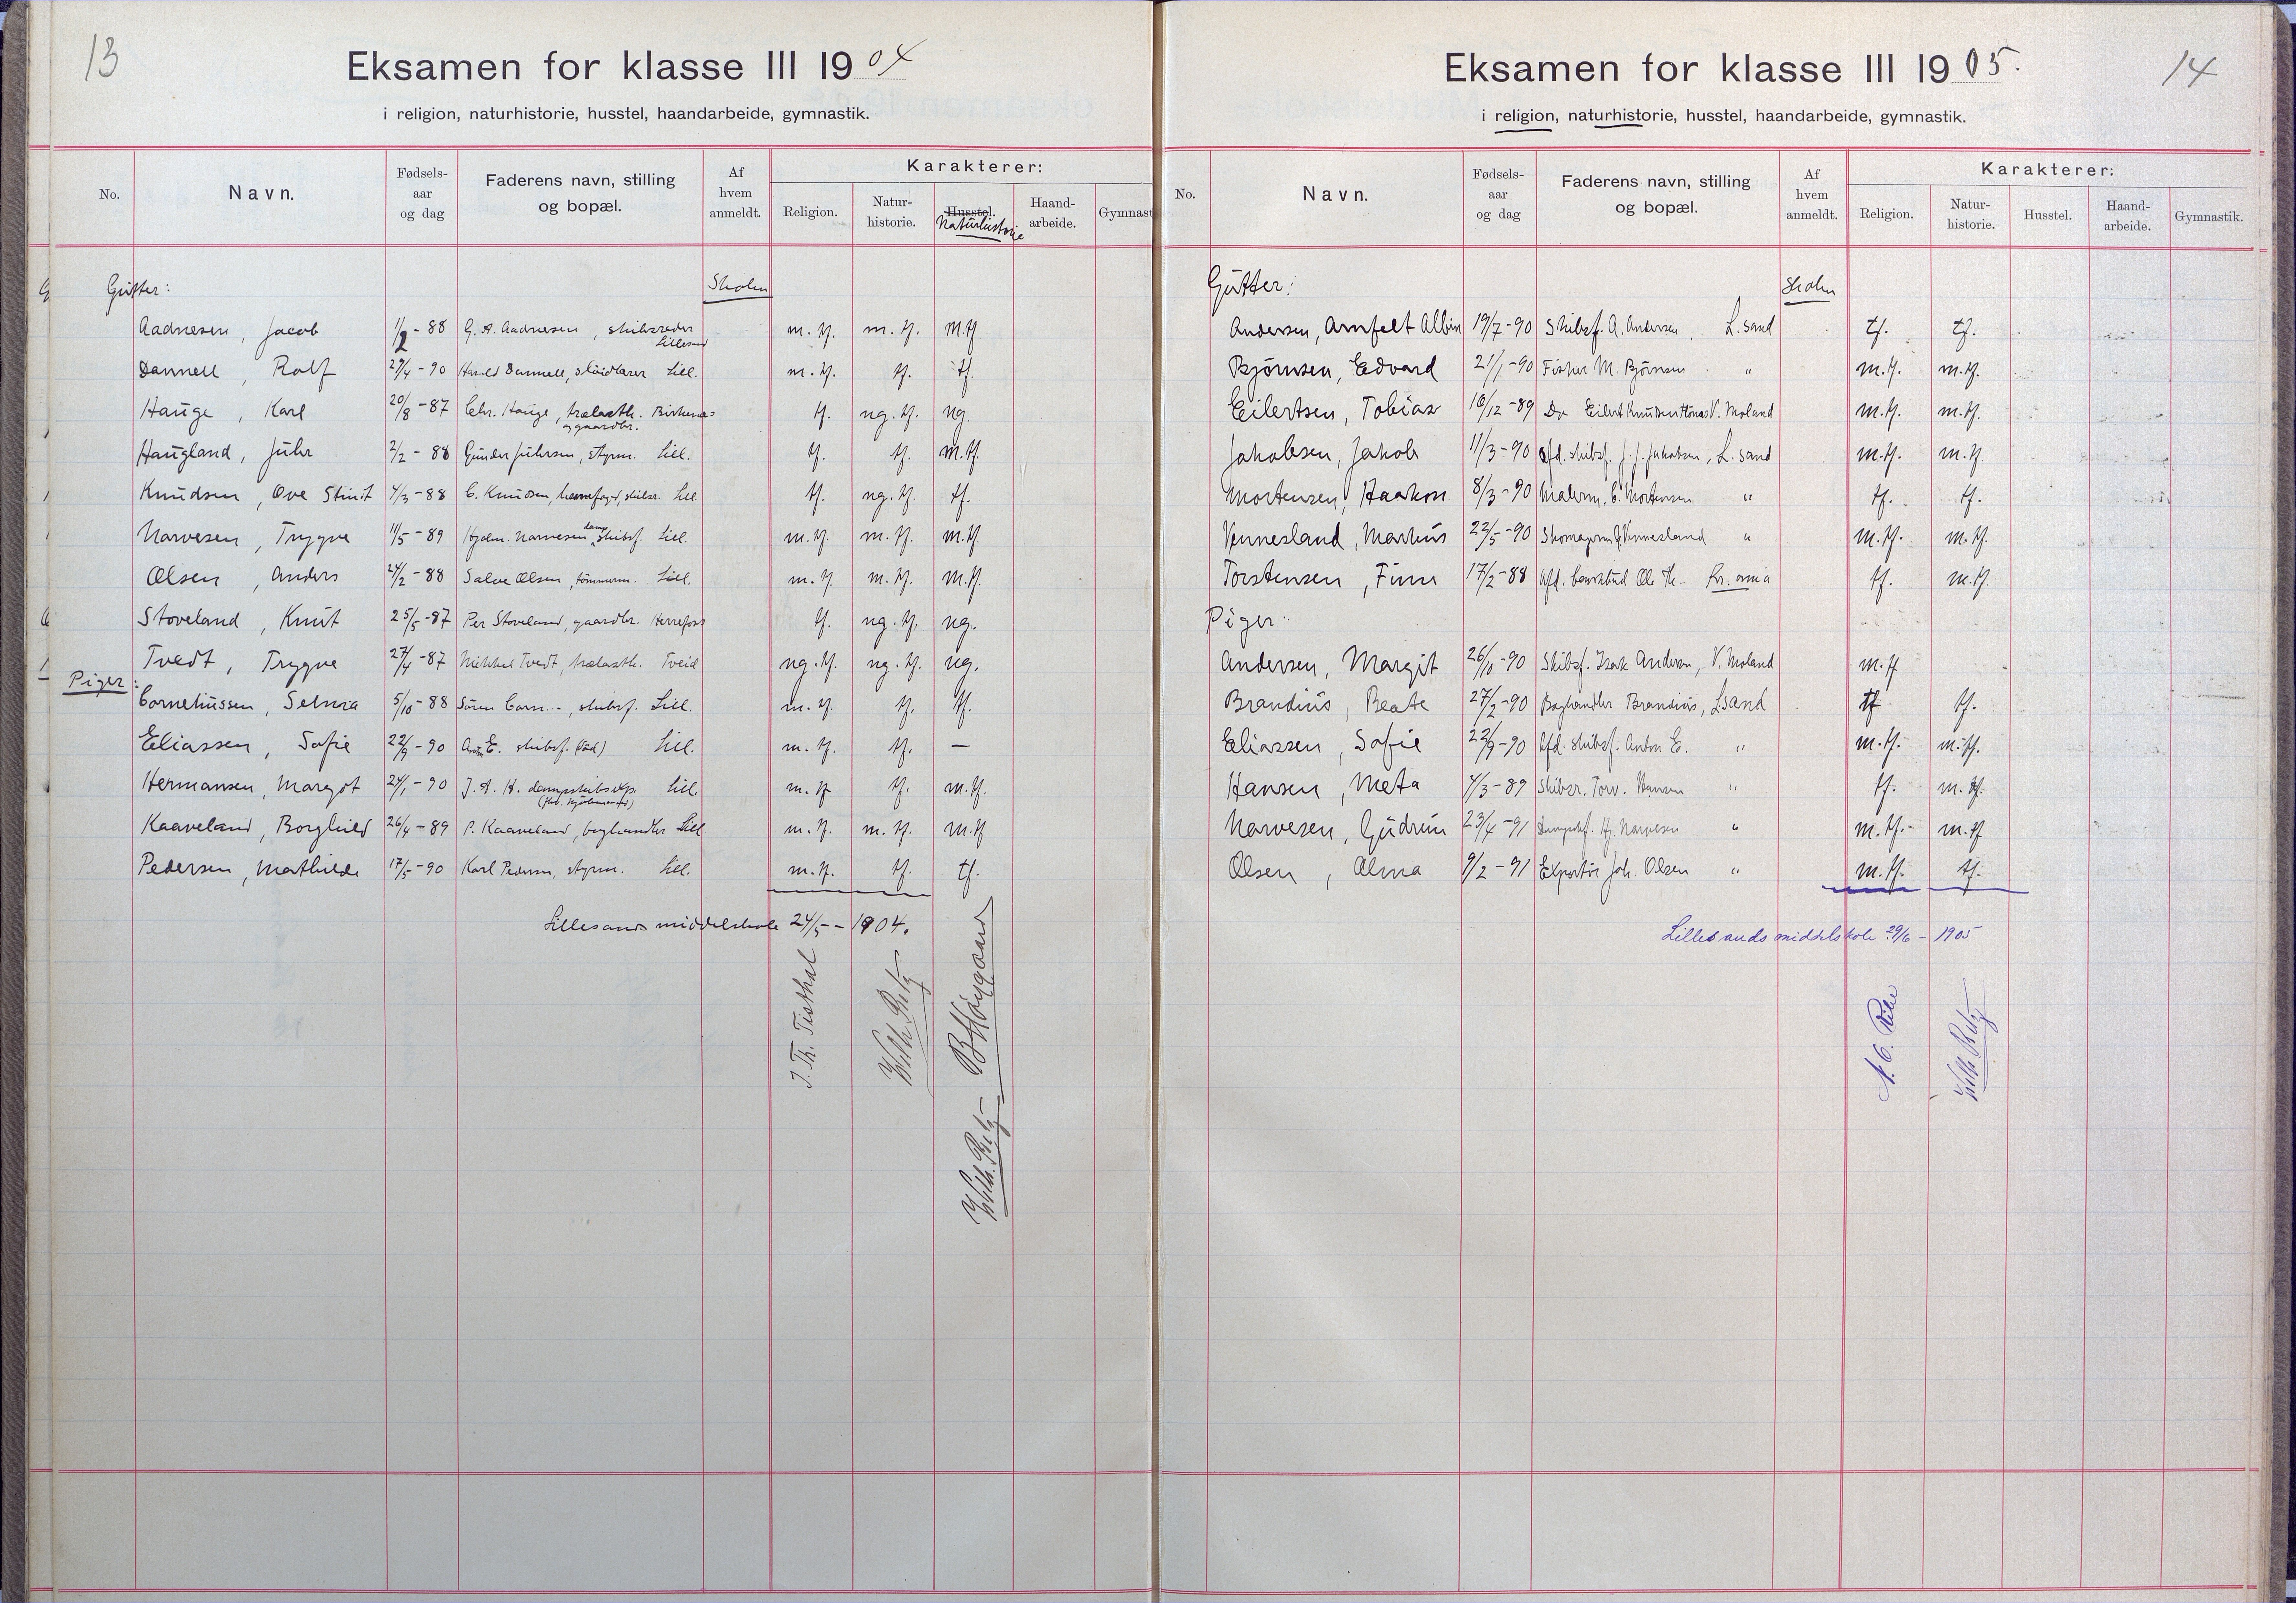 13
Eksamen for klasse III 1904
i religion, naturhistorie, husstel, haandarbeide, gymnastik.
No. Navn. Fødsels-aar og dag Faderens navn, stilling og bopæl. Af hvem anmeldt. Karakterer:
Religion. Natur-historie. Husstel. Naturhistorie Haand-arbeide. Gymnast
Gutter: Skolen
Aadnesen, Jacob 1/2-88 G. A. Aadnesen, skibsreder Lillesand m.tf. m.tf. m.tf.
Dannell, Rolf 29/4-90 Harald Dannell, sløidlærer Lill. m.tf. tf. tf.
Hauge, Karl 20/8-87 Chr. Hauge, trælasth. og gaardbr. Birkenæs tf. ng.tf. ng.
Haugland, Juhr 2/2-88 Gunder Juhrsen, styrm. Lill. tf. tf. m.tf.
Knudsen, Ove Stindt 4/3-88 C. Knudsen, havnefogd, skibsr. Lill tf. ng.tf. tf.
Narvesen, Trygve 11/5-89 Hjalm. Narvesen, damp skibsf. Lill. m.tf. m.tf. m.tf.
Olsen, Anders 24/2-88 Salve Olsen, tømmerm. Lill. m.tf. m.tf. m.tf.
Stoveland, Knut 25/5-87 Per Stoveland, gaardbr. Herrefoss tf. ng.tf. ng.
Tvedt, Trygve 27/4-87 Mikkel Tvedt, trælasth. Tveid ng.tf. ng.tf. ng.
Piger:
Corneliussen, Selma 5/10-88 Søren Corn.-, skibsf. Lill. m.tf. tf. tf.
Eliassen, Sofie 22/9-90 Anton E. skibsf. (død) Lill. m.tf. tf. —
Hermansen, Margot 24/1-90 J. A. H. dampskibsexp. Lill. m.tf tf. m.tf.
Kaaveland, Borghild 26/4-89 P. Kaaveland, boghandler Lill m.tf. m.tf. m.tf
Pedersen, Mathilde 17/5-90 Karl Pedersen, styrm. Lill. m.tf. tf. tf.
Lillesands middelskole 24/5-1904.
J. Th. Tisthal
Wilh. Reitz
B Høygaard
Wilh. Reitz
14
Eksamen for klasse III 1905.
i religion, naturhistorie, husstel, haandarbeide, gymnastik.
No. Navn. Fødsels-aar og dag Faderens navn, stilling og bopæl. Af hvem anmeldt. Karakterer:
Religion. Natur-historie. Husstel. Haand-arbeide. Gymnastik.
Gutter: Skolen
Andersen, Arnfelt Albin 19/7-90 Skibsf. A. Andersen. L.sand tf. tf.
Bjørnsen, Edvard 21/1-90 Fisker M. Bjørnsen " m.tf. m.tf.
Eilertsen, Tobias 16/12-89 Do Eilert Knudsen V. Moland m.tf. m.tf.
Jakobsen, Jakob 11/3-90 Afd. skibsf. J. J. Jakobsen, L.sand m.tf. m.tf
Mortensen, Haakon 8/3-90 Malerm. C. Mortensen " tf. tf.
Vennesland, Markus 22/5-90 Skomagerm. G. Vennesland " m.tf. m.tf.
Torstensen, Finn 17/2-88 Afd. Ole Th. Kr.ania tf. m.tf.
Piger:
Andersen, Margit 26/10-90 Skibsf. Isak Andersen, V. Moland m.tf
Brandius, Beate 27/2-90 Boghandler Brandius, L.sand tf tf.
Eliassen, Sofie 22/9-90 Afd. skibsf. Anton E. " m.tf. m.tf.
Hansen, Meta 4/3-89 Skibsr. Torv. Hansen " tf. m.tf.
Narvesen, Gudrun 23/4-91 Dampskf. Hj. Narvesen " m.tf. m.tf
Olsen, Alma 9/2-91 Exportør Joh. Olsen " m.tf. tf.
Lillesands middelskole 29/6-1905
Wilh. Reitz